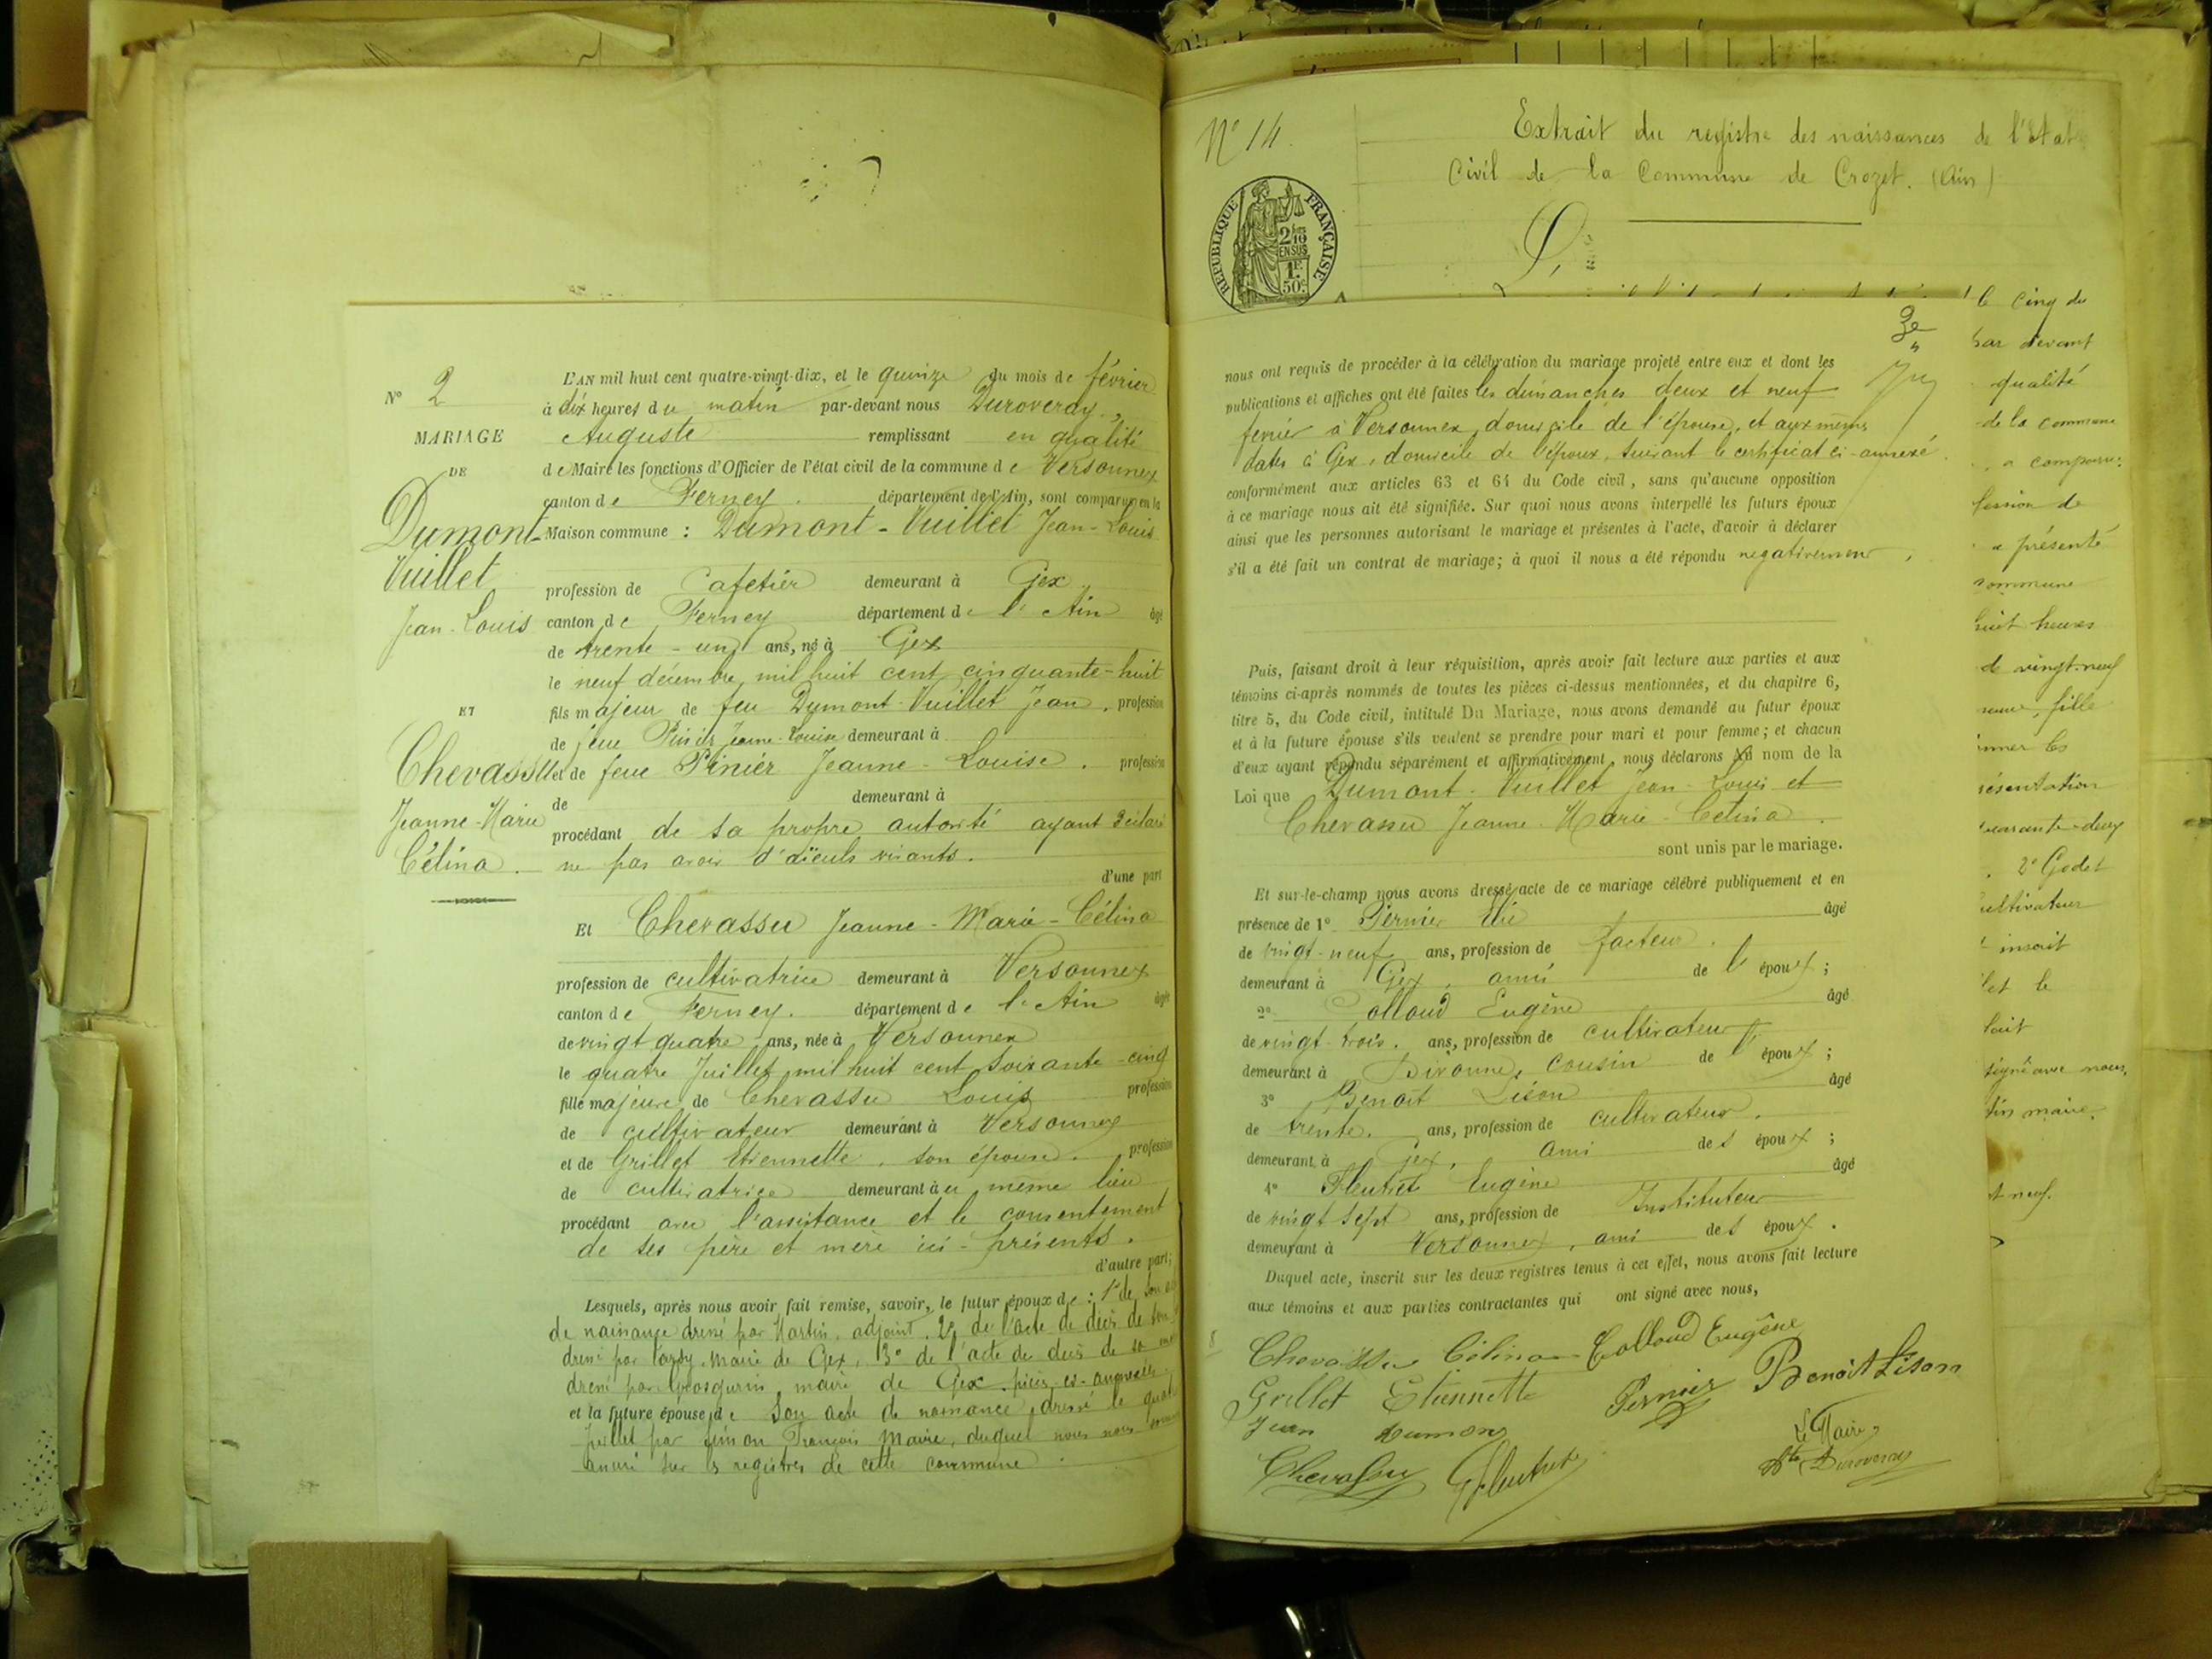 N° 2
MARIAGE
DE
Dumont-
Vuillet
Jean-Louis
ET
Chevassu
Jeanne-Marie
Célina.
L'AN mil huit cent quatre-vingt-dix, et le quinze du mois de février
à dix heures du matin par-devant nous Duroveray,
Auguste remplissant en qualité
de Maire les fonctions d'Officier de l'état civil de la commune de Versonnex
canton de Ferney. département de l'Ain, sont comparus en la
Maison commune : Dumont-Vuillet Jean-Louis
profession de Cafetier demeurant à Gex
canton de Ferney département de l'Ain âgé
de trente-un ans, né à Gex
le neuf décembre mil huit cent cinquante-huit
fils majeur de feu Dumont-Vuillet Jean, profession
de feue Pinier Jeanne-Louise demeurant à
et de feue Pinier Jeanne-Louise. profession
de demeurant à
procédant de sa propre autorité ayant déclaré
ne pas avoir d'aïeuls vivants.
d'une part
Et Chevassu Jeanne-Marie-Célina
profession de cultivatrice demeurant à Versonnex
canton de Ferney. département de l'Ain âgée
de vingt quatre ans, née à Versonnex
le quatre Juillet mil huit cent soixante-cinq
fille majeure de Chevassu Louis profession
de cultivateur demeurant à Versonnex
et de Grillet Etiennette, son épouse. profession
de cultivatrice demeurant au même lieu
procédant avec l'assistance et le consentement
de ses père et mère ici-présents.
d'autre part;
Lesquels, après nous avoir fait remise, savoir, le futur époux de : 1° de son
de naissance dressé par Martin, adjoint, 2° de l'acte de décès de son
dressé par maire de Gex, 3° de l'acte de décès de sa
dressé par maire de Gex, pièces ci-annexées
et la future épouse de son acte de naissance dressé le quatre
juillet par François Maire, duquel nous nous sommes
assuré sur les registres de cette commune.
N° 14.
Extrait du registre des naissances de l'Etat
Civil de la Commune de Crozet. (Ain)
REPUBLIQUE FRANÇAISE
2/10 EN SUS
1F 50c
nous ont requis de procéder à la célébration du mariage projeté entre eux et dont les
publications et affiches ont été faites les dimanches deux et neuf
février à Versonnex, domicile de l'épouse, et aux mêmes
dates à Gex, domicile de l'époux, suivant le certificat ci-annexé.
conformément aux articles 63 et 64 du Code civil, sans qu'aucune opposition
à ce mariage nous ait été signifiée. Sur quoi nous avons interpellé les futurs époux
ainsi que les personnes autorisant le mariage et présentes à l'acte, d'avoir à déclarer
s'il a été fait un contrat de mariage; à quoi il nous a été répondu negativement,
Puis, faisant droit à leur réquisition, après avoir fait lecture aux parties et aux
témoins ci-après nommés de toutes les pièces ci-dessus mentionnées, et du chapitre 6,
titre 5, du Code civil, intitulé Du Mariage, nous avons demandé au futur époux
et à la future épouse s'ils veulent se prendre pour mari et pour femme; et chacun
d'eux ayant répondu séparément et affirmativement, nous déclarons au nom de la
Loi que Dumont-Vuillet Jean-Louis et
Chevassu Jeanne-Marie-Célina.
sont unis par le mariage.
Et sur-le-champ nous avons dressé acte de ce mariage célébré publiquement et en
présence de 1° Pernier Elie âgé
de vingt-neuf ans, profession de facteur.
demeurant à Gex, ami de l'époux;
2° Colloud Eugène âgé
de vingt-trois. ans, profession de cultivateur
demeurant à Divonne, cousin de l'époux;
3° Benoit Lison âgé
de trente. ans, profession de cultivateur.
demeurant à Gex, ami des époux;
4° Fleutret Eugène âgé
de vingt sept ans, profession de Instituteur
demeurant à Versonnex, ami des époux.
Duquel acte, inscrit sur les deux registres tenus à cet effet, nous avons fait lecture
aux témoins et aux parties contractantes qui ont signé avec nous,
Chevassu Célina Colloud Eugène
Grillet Etiennette Pernier Benoit Lison
Jean Dumont Le Maire,
Chevassu Fleutret Duroveray
le cinq du
par devant
qualité
de la commune
a comparu:
fession de
a présenté
commune
huit heures
de vingt-neuf
fille
les
résentation
quarante-deux
2° Godet
cultivateur
inscrit
et le
fait
signé avec nous,
maire.
neuf.